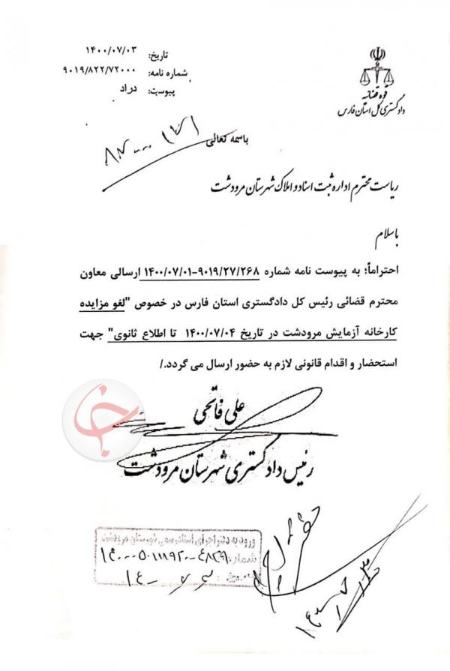 قوه قضائیه
دادگستری کل استان فارس
تاریخ: ۱۴۰۰/۰۷/۰۳
شماره نامه: ۹۰۱۹/۸۲۲/۷۲۰۰۰
پیوست: دراد
باسمه تعالی
ریاست محترم اداره ثبت اسناد و املاک شهرستان مرودشت
باسلام
احتراماً؛ به پیوست نامه شماره ۹۰۱۹/۲۷/۲۶۸-۱۴۰۰/۰۷/۰۱ ارسالی معاون
محترم قضائی رئیس کل دادگستری استان فارس در خصوص "لغو مزایده
کارخانه آزمایش مرودشت در تاریخ ۱۴۰۰/۰۷/۰۴ تا اطلاع ثانوی" جهت
استحضار و اقدام قانونی لازم به حضور ارسال می گردد./
علی فاتحی
رئیس دادگستری شهرستان مرودشت
ورود به دفتر اجرای اسناد رسمی شهرستان مرودشت
شماره: